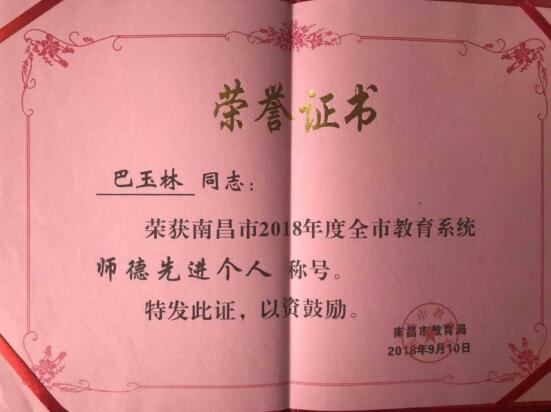 荣誉证书
巴玉林 同志：
荣获南昌市2018年度全市教育系统
师德先进个人 称号。
特发此证，以资鼓励。
南昌市教育局
2018年9月10日